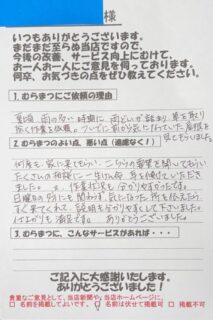 様
いつもありがとうございます。
まだまだ至らぬ当店ですので、
今後の改善、サービス向上にむけて、
お一人お一人にご意見を伺っております。
何卒、お気づきの点をぜひ教えてください。
1.むらまつにご依頼の理由
夏頃 雨の多い時期に 雨どいが詰まり 草を取り
除く作業を依頼。ついでに前から気に行っていた屋根を
見てもらいました。
2.むらまつのよい点、悪い点（遠慮なく！）
何年も家に来てもらい、こちらの要望を聞いてもらい
たくさんの相談に一生けん命 耳を傾けていただき
ました。作業状況も分かりやすかったです。
日曜日の別件にも関わらず 気になった所を伝えたら
すぐ来てくれて、説明も分かりやすくして下さいました。
仕上がりも満足です。ありがとうございました。
3.むらまつに、こんなサービスがあれば・・・
ご記入に大感謝いたします。
ありがとうございました！
貴重なご意見として、当店新聞や、当店ホームページに、
□ 名前を掲載してよいです。 □ 名前は伏せて掲載可 □ 掲載不可